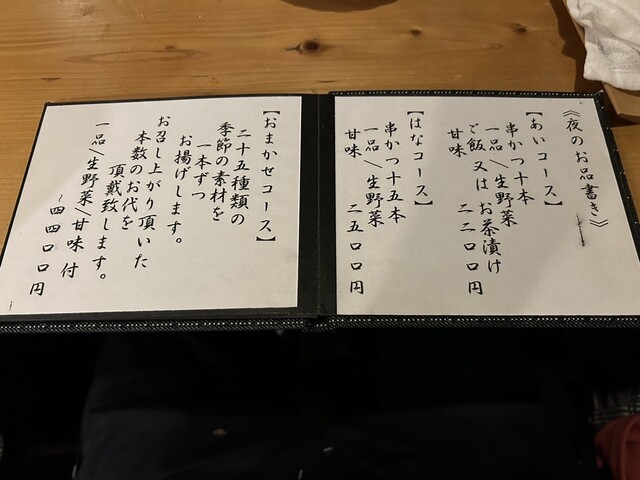 《夜のお品書き》
【あいコース】
串かつ十本
一品/生野菜
ご飯又はお茶漬け
甘味 二二〇〇円
【はなコース】
串かつ十五本
一品/生野菜
甘味 二五〇〇円
【おまかせコース】
二十五種類の
季節の素材を
一本ずつ
お揚げします。
お召し上がり頂いた
本数のお代を
頂戴致します。
一品/生野菜/甘味 付
~四四〇〇円